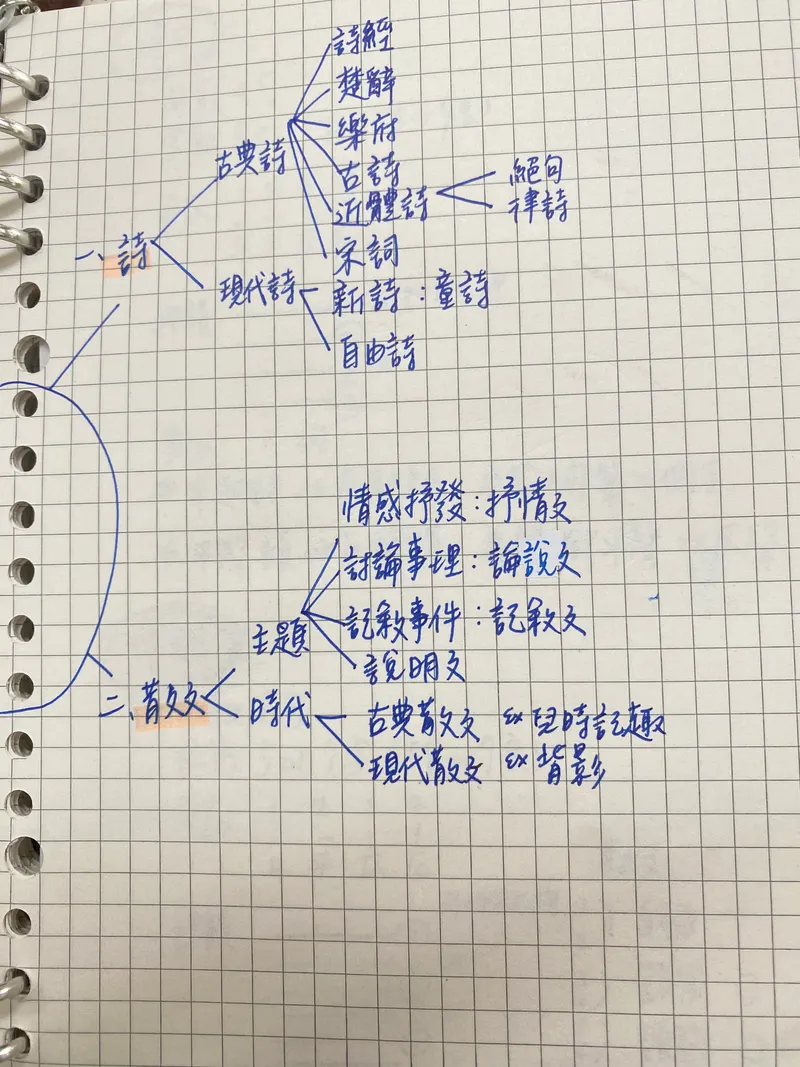 一、詩
古典詩
詩經
楚辭
樂府
古詩
近體詩
絕句
律詩
宋詞
現代詩
新詩：童詩
自由詩
二、散文
主題
情感抒發：抒情文
討論事理：論說文
記敘事件：記敘文
說明文
時代
古典散文 ex 兒時記趣
現代散文 ex 背影